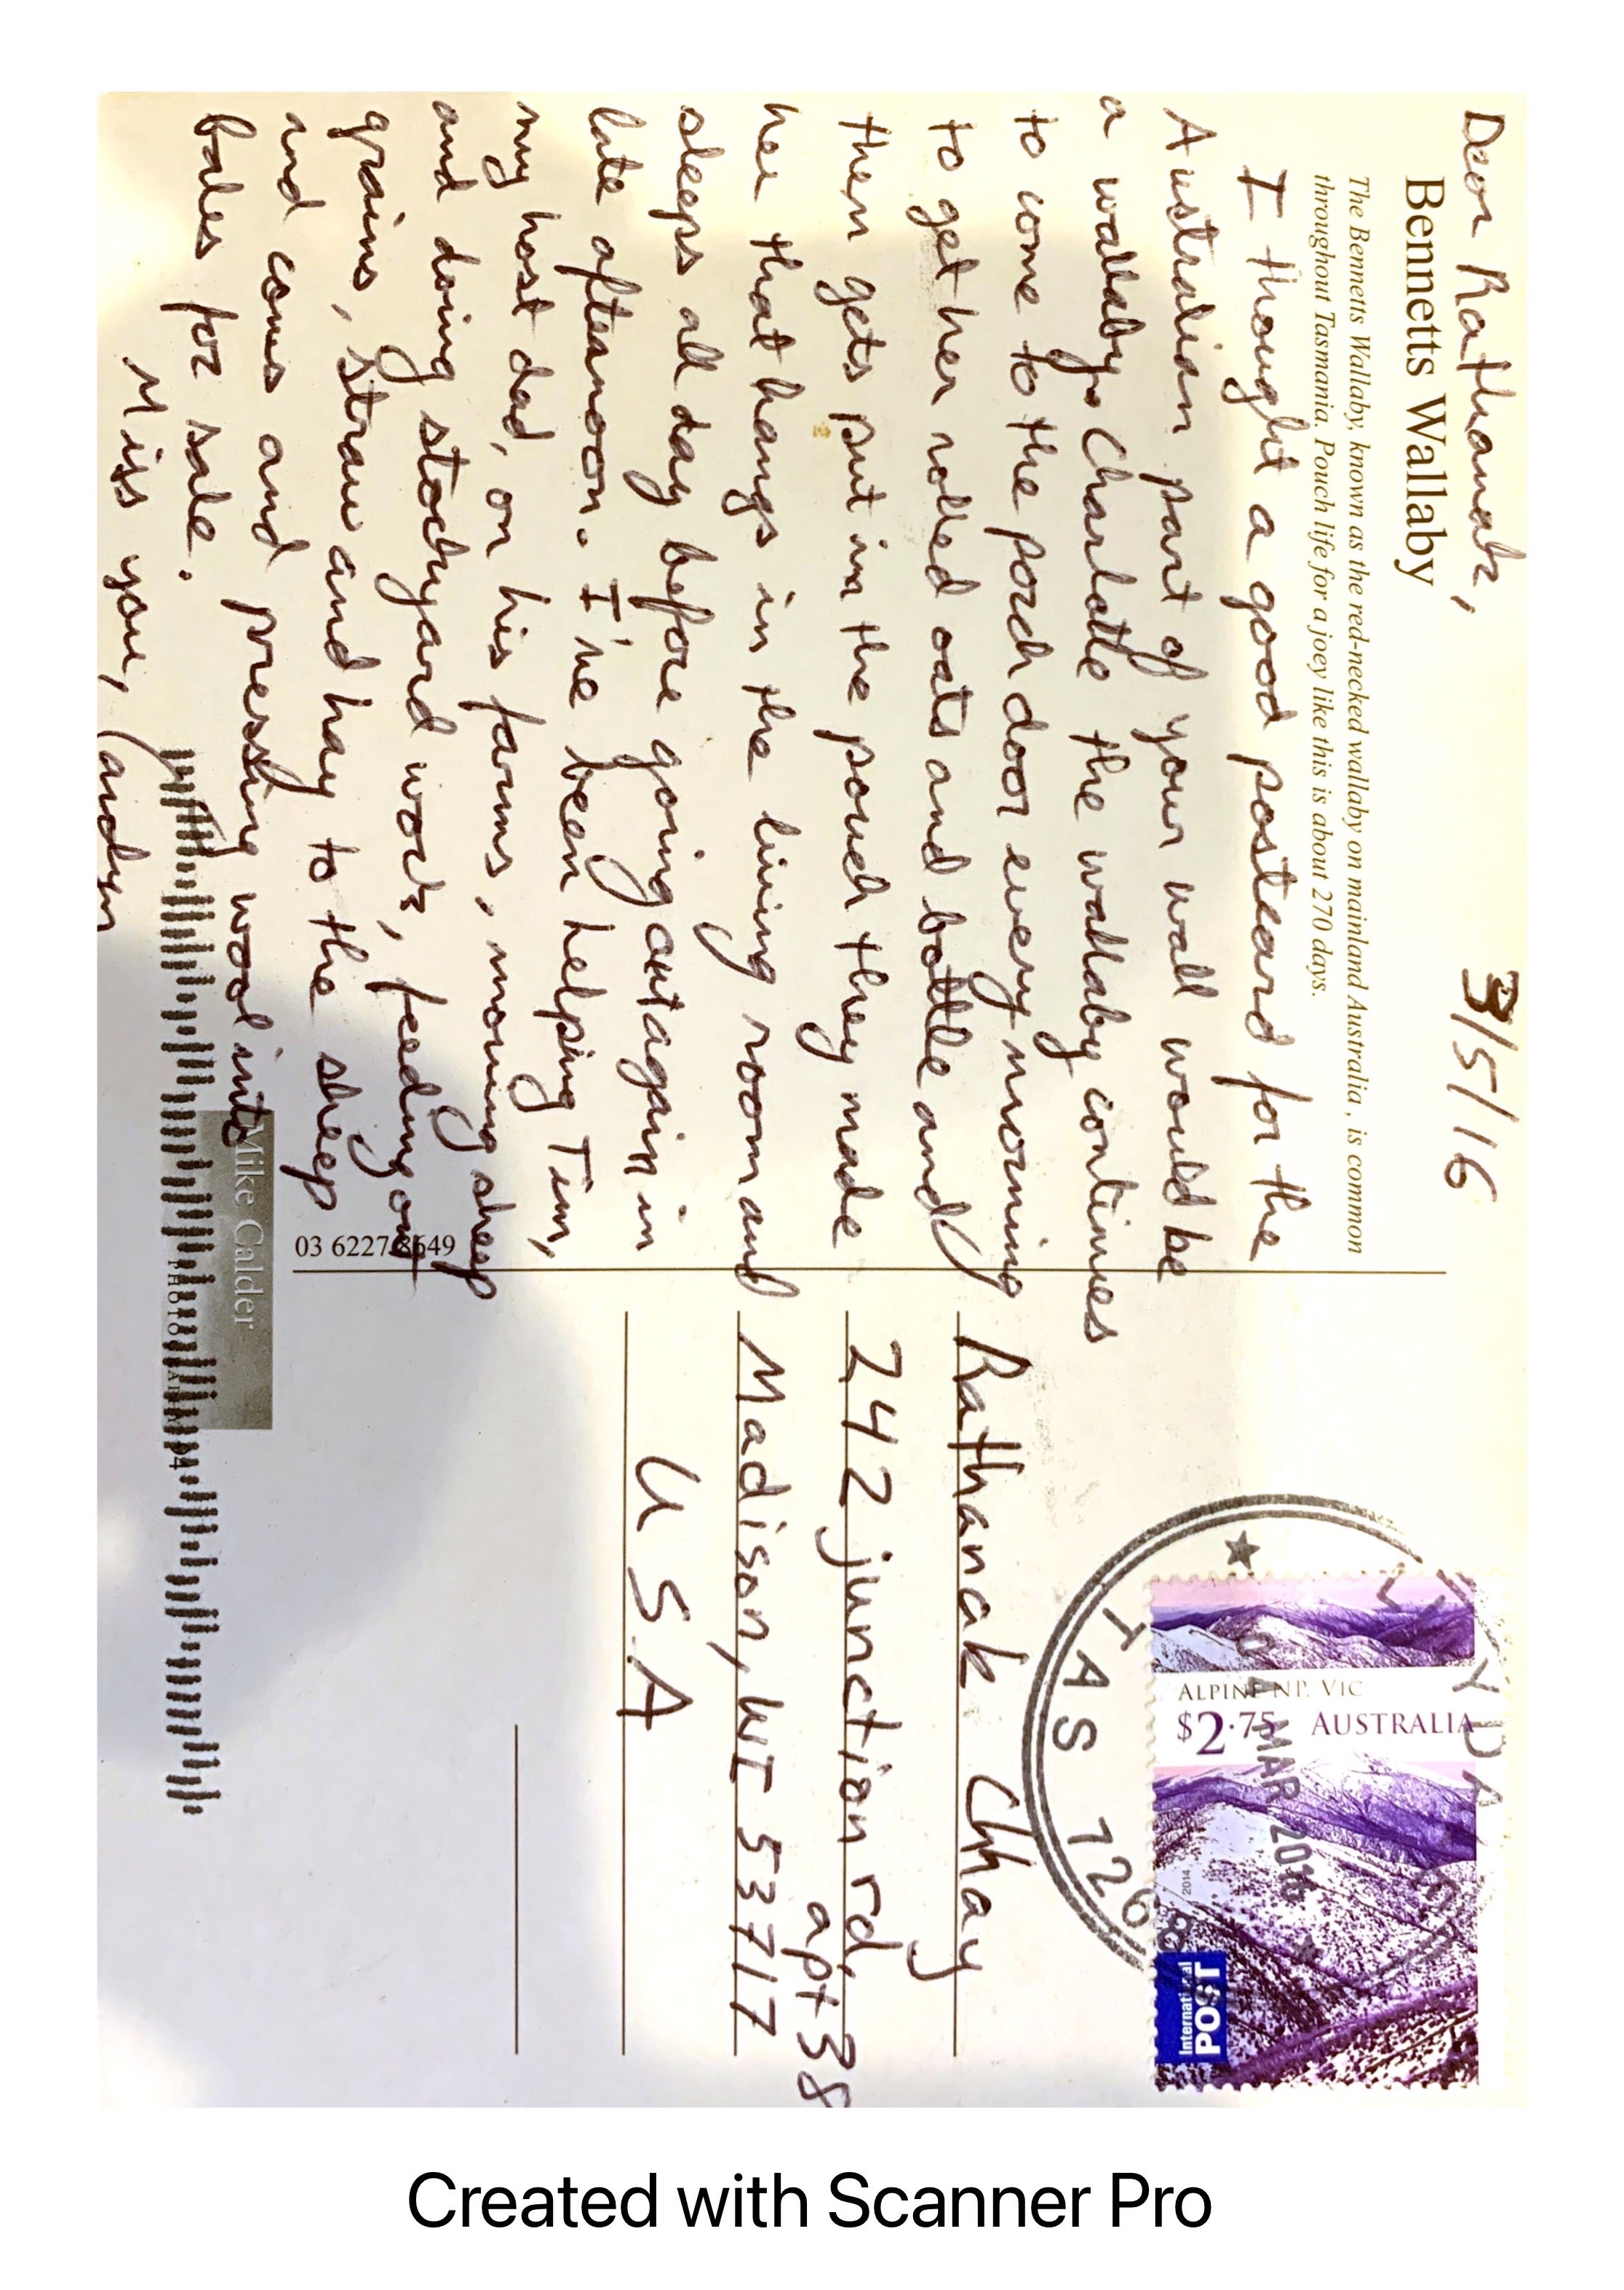 Dear Rathanak,
3/5/16
Bennetts Wallaby
The Bennetts Wallaby, known as the red-necked wallaby on mainland Australia, is common
throughout Tasmania. Pouch life for a joey like this is about 270 days.
I thought a good postcard for the
Australian part of your wall would be
a wallaby. Charlotte the wallaby continues
to come to the porch door every morning
to get her rolled oats and bottle and
then gets put in the pouch they made
her that hangs in the living room and
sleeps all day before going out again in
late afternoon. I've been helping Tim,
my host dad, on his farms, moving sheep
and doing stockyard work, feeding out
grains, straw and hay to the sheep
and cows and pressing wool into
bales for sale.
Miss you,
Mike Calder
03 6227 8649
Rathanak Chhay
242 junction rd,
apt 38
Madison, WI 53717
USA
TAS 726
MAR 2016
ALPINE NP, VIC
$2.75 AUSTRALIA
2014
International
POST
Created with Scanner Pro